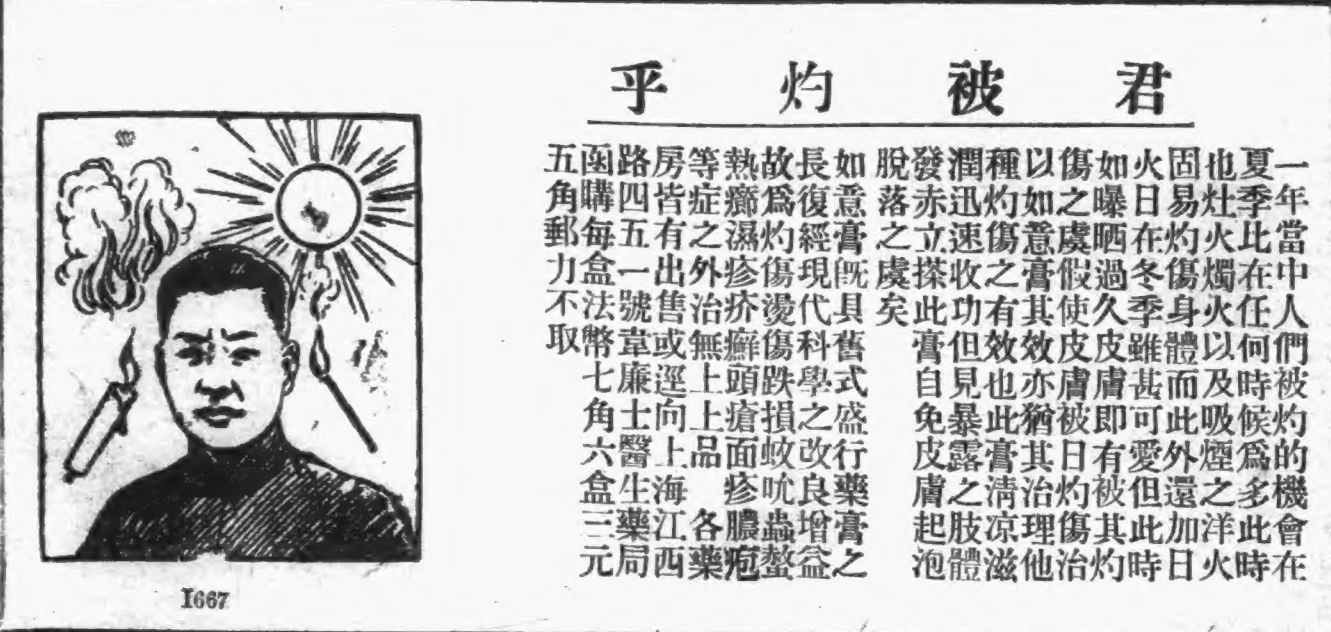 君被灼乎
一年當中人們被灼的機會在
夏季比在任何時候爲多此時
也灶火燭火以及吸煙之洋火
固易灼傷身體而此外還加日
火日在冬季雖甚可愛但此時
如曝晒過久皮膚即有被其灼
傷之虞假使皮膚被日灼傷治
以如意膏其效亦猶其治理他
種灼傷之有效也此膏淸凉滋
潤迅速收功但見暴露之肢體
發赤立搽此膏自免皮膚起泡
脫落之虞矣
如意膏旣具舊式盛行藥膏之
長復經現代科學之改良增益
故爲灼傷燙傷跌損蚊吮蟲螫
熱癤濕疹疥癬頭瘡面疹膿疱
等症之外治無上上品 各藥
房皆有出售或逕向上海江西
路四五一號韋廉士醫生藥局
函購每盒法幣七角六盒三元
五角郵力不取
1667